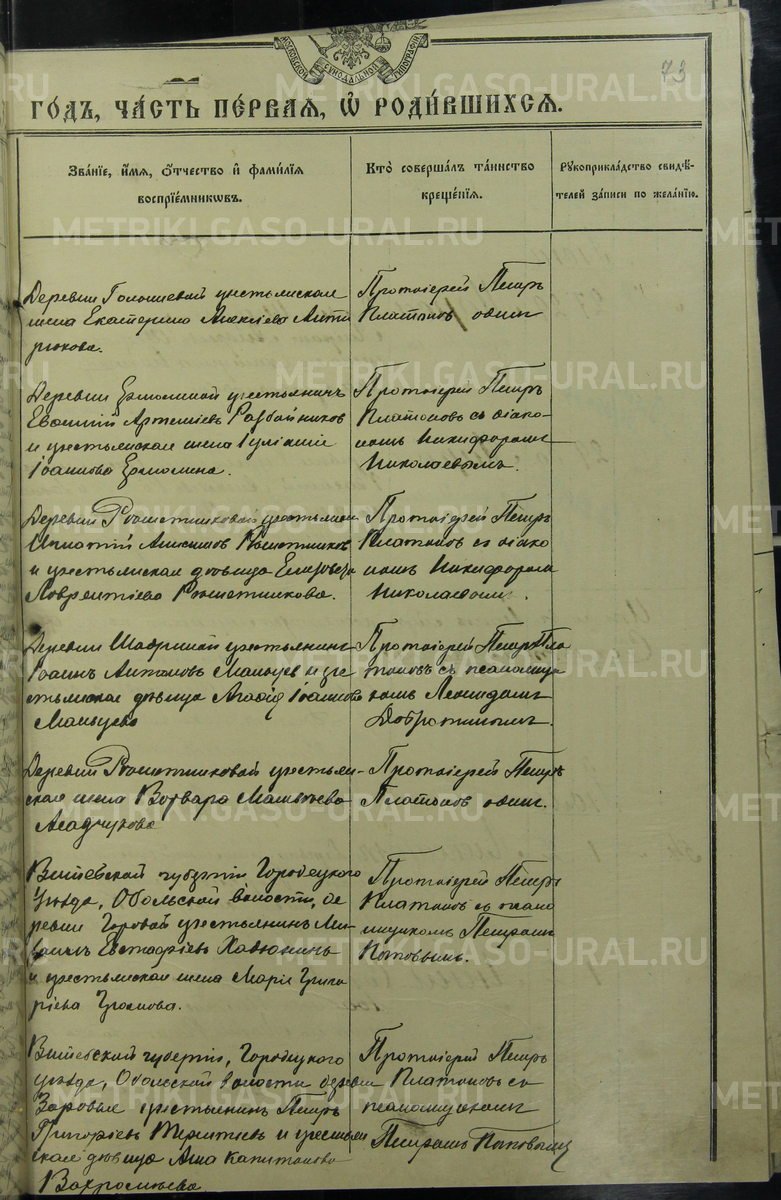 73
МОСКОВСКОЙ СѴНОДАЛЬНОЙ ТИПОГРАФІИ
ГОДЪ, ЧАСТЬ ПЕРВАЯ, Ѽ РОДИВШИХСЯ.
Званіе, имя, отчество и фамилія воспріемниковъ.
Кто совершалъ таинство крещенія.
Рукоприкладство свидѣтелей записи по желанію.
METRIKI.GASO-URAL.RU
Деревни крестьянская
жена Екатерина Алексіева
Протоіерей Петръ
Платоновъ одинъ
Деревни Ермолиной крестьянинъ
Евѳимій Артеміевъ Разбойников
и крестьянская жена Іуліанія
Іоаннова Ермолина.
Протоіерей Петръ
Платоновъ съ діако
номъ Никифоромъ
Николаевымъ.
Деревни Рѣшетниковой крестьянин
Игнатій Анисимов Рѣшетников
и крестьянская дѣвица Елизавета
Лаврентіева Рѣшетникова.
Протоіерей Петръ
Платонов съ діако
номъ Никифоромъ
Николаевым.
Деревни Шавриной крестьянинъ
Іоаннъ Антоновъ Мальцев и кре
стьянская дѣвица Агафія Іоаннова
Мальцева
Протоіерей Петръ Пла
тоновъ съ псаломщи
комъ Леонидомъ
Добротинымъ.
Деревни Рѣшетниковой крестьян-
ская жена Варвара Матвѣева
Протоіерей Петръ
Платонов одинъ.
Витебской губерніи Городецкого
Уѣзда, Обольской волости, де
ревни Горовой крестьянинъ
Евстафіевъ
и крестьянская жена Марія Григо
ріева Громова.
Протоіерей Петръ
Платонов съ псало
мщикомъ Петромъ
Поповымъ.
Витебской губерніи, Городецкого
уѣзда, Обольской волости деревни
крестьянинъ Петръ
Григоріевъ Терентіев и крестьян
ская дѣвица Анна Капитонова
Вахромѣева
Протоіерей Петръ
Платоновъ съ
псаломщикомъ
Петромъ Поповымъ